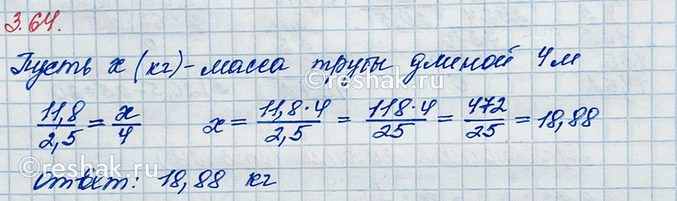 3.64.
Пусть x (кг) - масса трубы длиной 4м
11,8/2,5 = x/4 x = 11,8·4/2,5 = 118·4/25 = 472/25 = 18,88
Ответ: 18,88 кг